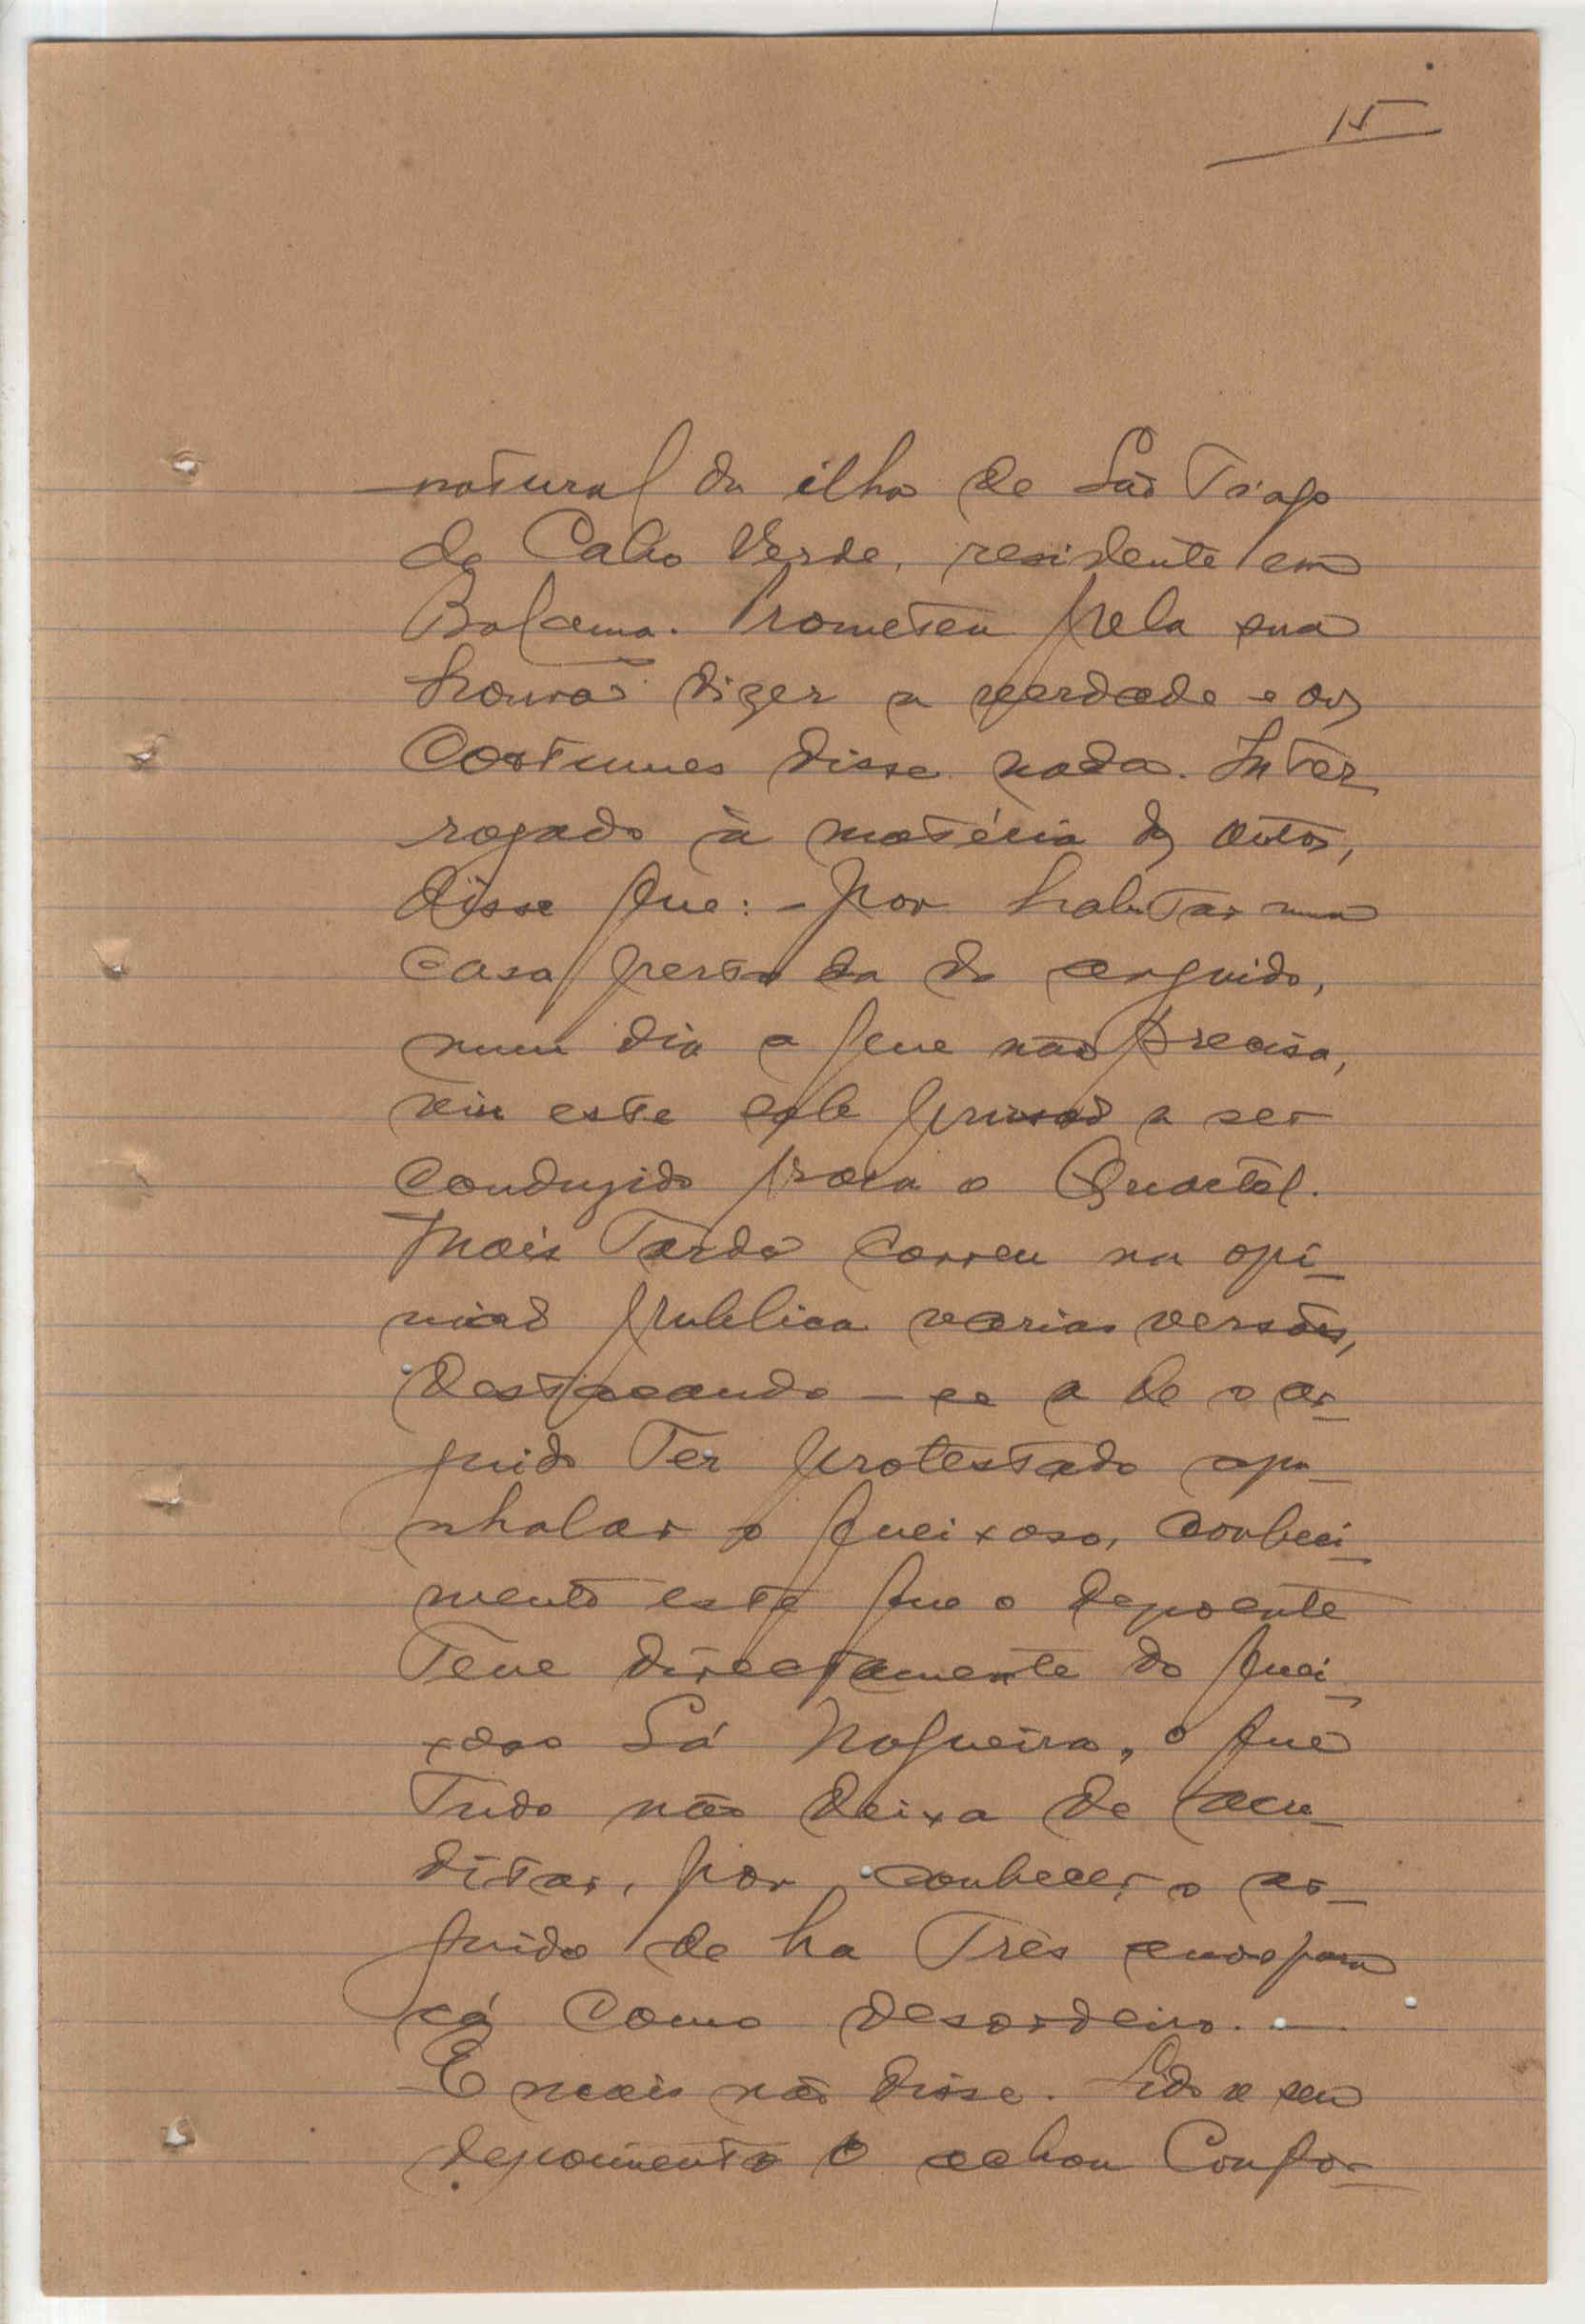 15
natural da ilha de São Tiago
de Cabo Verde, residente em
Bolama. Prometeu pela sua
honra dizer a verdade e aos
costumes disse nada. Inter
rogado à matéria dos autos,
disse que: - por habitar numa
casa perto da do arguido,
num dia a que não precisa,
viu este sob prisão a ser
conduzido para o Quartel.
Mais tarde correu na opi-
nião publica varias versões,
destacando-se a de o ar-
guido ter protestado apu-
nhalar o queixoso, conheci-
mento este que o depoente
teve directamente do quei-
xoso Sá Nogueira, o que
tudo não deixa de acre-
ditar, por conhecer o ar-
guido de ha três anos para
cá como desordeiro. —
E mais não disse. Lido o seu
depoimento o achou confor-